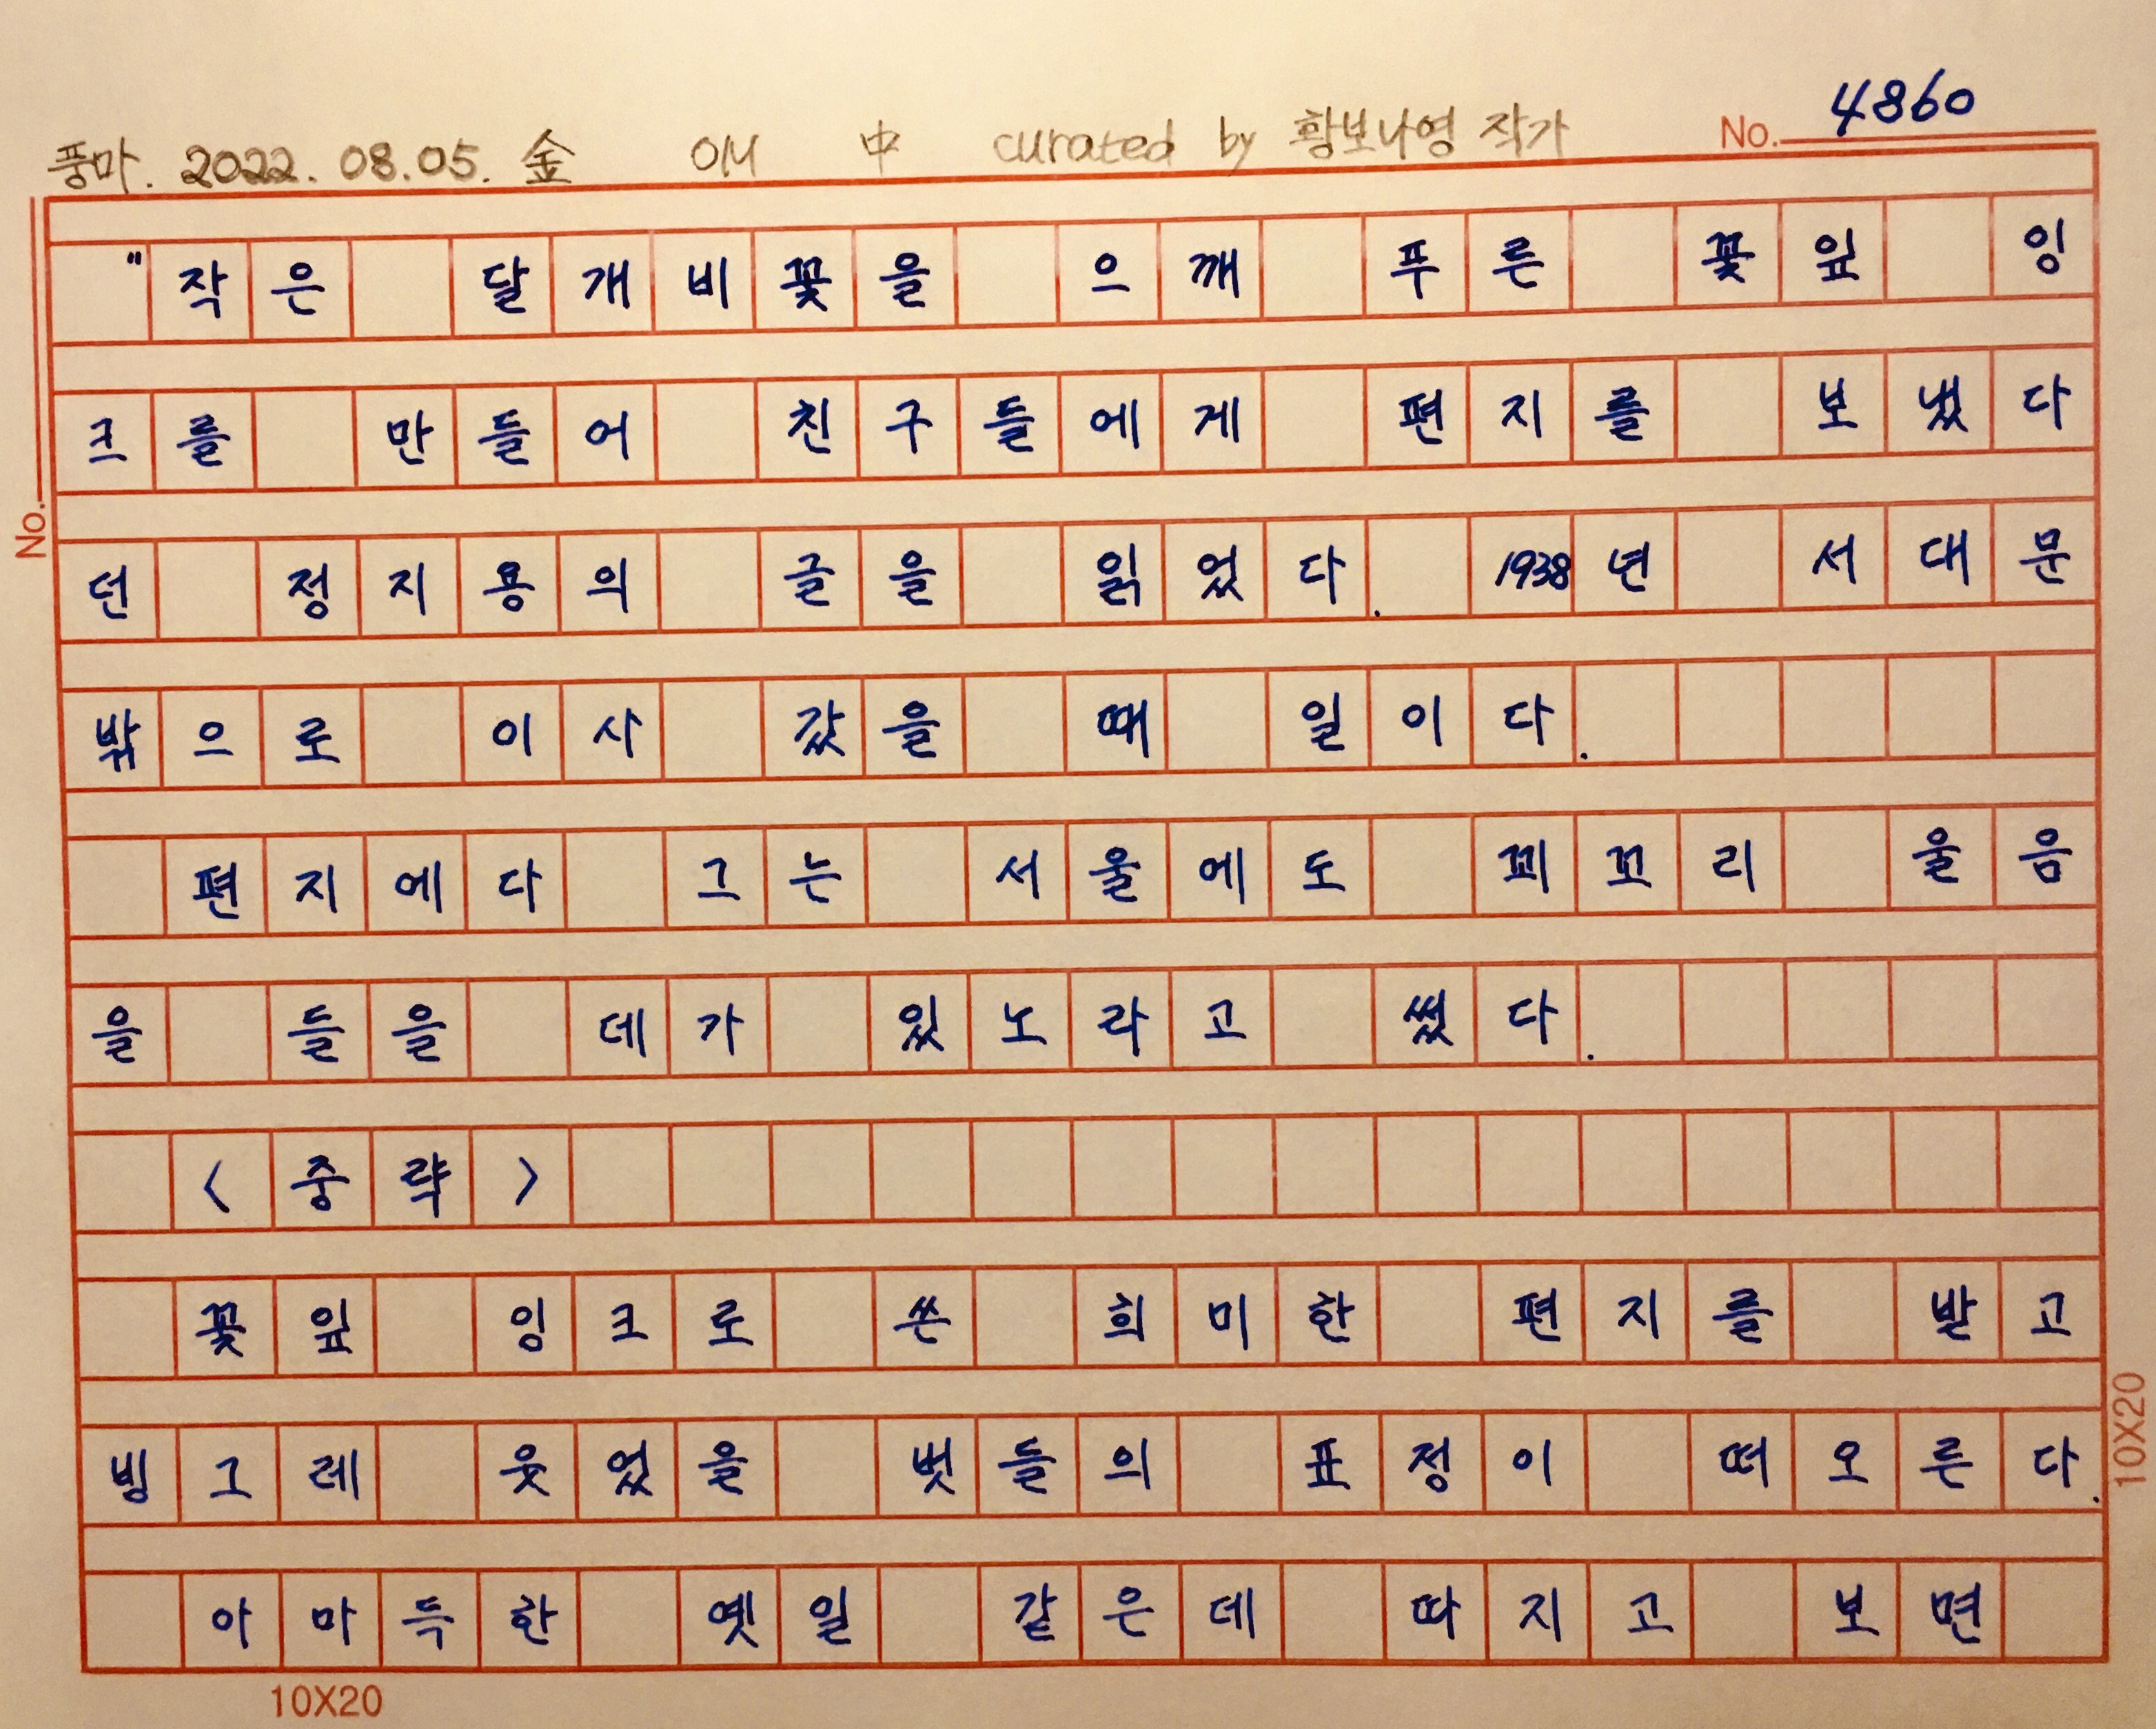 No. 4860
풍마. 2022. 08.05. 金 OM 中 curated by 황보나영 작가
"작은 달개비꽃을 으깨 푸른 꽃잎 잉
크를 만들어 친구들에게 편지를 보냈다
던 정지용의 글을 읽었다. 1938년 서대문
밖으로 이사 갔을 때 일이다.
편지에다 그는 서울에도 꾀꼬리 울음
을 들을 데가 있노라고 썼다.
<중략>
꽃잎 잉크로 쓴 희미한 편지를 받고
빙그레 웃었을 벗들의 표정이 떠오른다.
아마득한 옛일 같은데 따지고 보면
No.
10X20
10X20